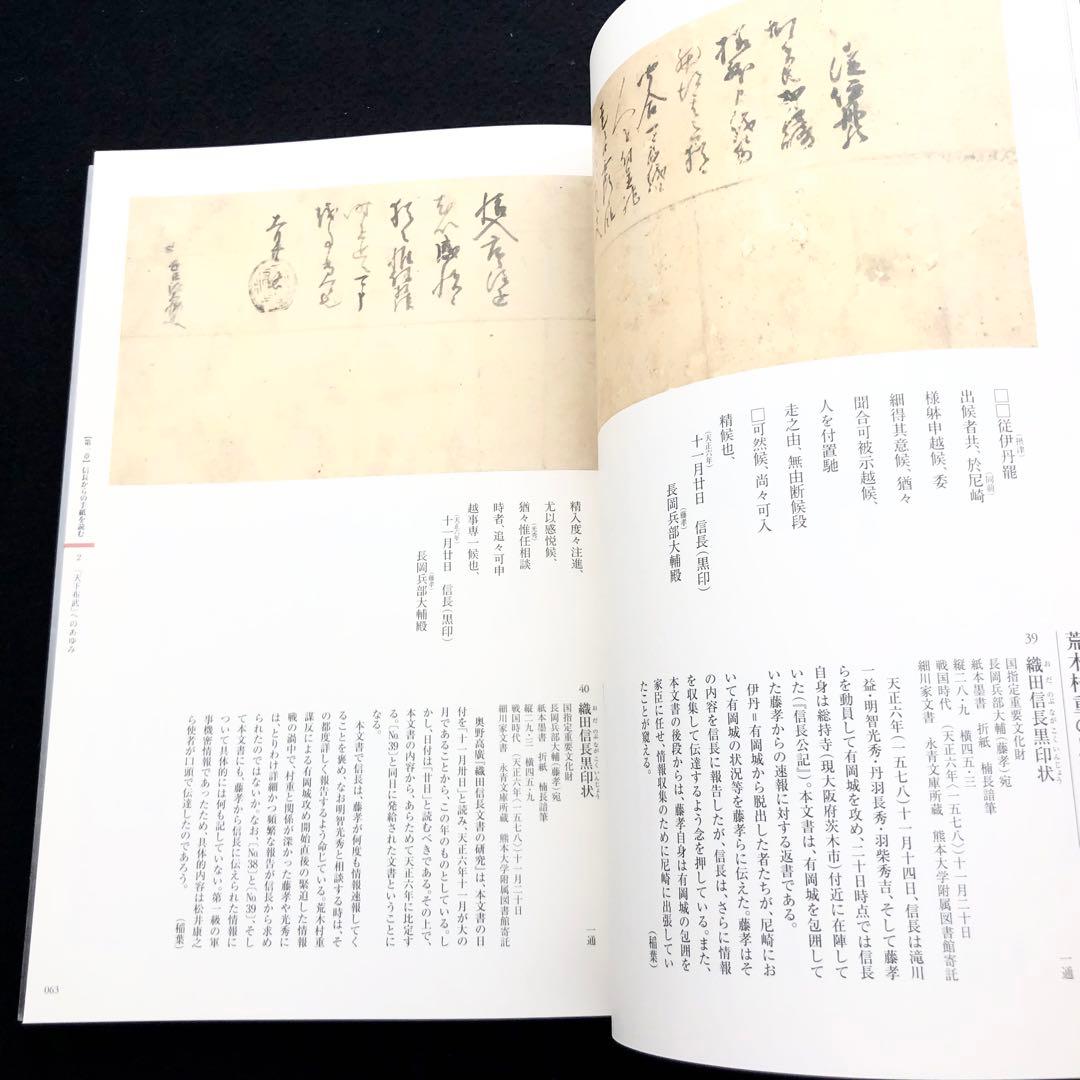 □□従伊丹罷
(摂津)
出候者共、於尼崎
(同前)
様躰申越候、委
細得其意候、猶々
聞合可被示越候、
人を付置馳
走之由、無由断候段
□可然候、尚々可入
精候也、
(天正六年)
十一月廿日 信長(黒印)
(藤孝)
長岡兵部大輔殿
39 織田信長黒印状
おだのぶながこくいんじょう
一通
国指定重要文化財
長岡兵部大輔(藤孝)宛
紙本墨書 折紙 楠長諳筆
縦二八・九 横四五・三
戦国時代 (天正六年〈一五七八〉)十一月二十日
細川家文書 永青文庫所蔵 熊本大学附属図書館寄託
天正六年(一五七八)十一月十四日、信長は滝川
一益・明智光秀・丹羽長秀・羽柴秀吉、そして藤孝
らを動員して有岡城を攻め、二十日時点では信長
自身は総持寺(現大阪府茨木市)付近に在陣して
いた(『信長公記』)。本文書は、有岡城を包囲して
いた藤孝からの速報に対する返書である。
伊丹=有岡城から脱出した者たちが、尼崎にお
いて有岡城の状況等を藤孝らに伝えた。藤孝はそ
の内容を信長に報告したが、信長は、さらに情報
を収集して伝達するよう念を押している。また、
本文書の後段からは、藤孝自身は有岡城の包囲を
家臣に任せ、情報収集のために尼崎に出張してい
たことが窺える。
(稲葉)
精入度々注進、
尤以感悦候、
(光秀)
猶々惟任相談
時者、追々可申
越事専一候也、
(天正六年)
十一月廿日 信長(黒印)
(藤孝)
長岡兵部大輔殿
40 織田信長黒印状
おだのぶながこくいんじょう
一通
国指定重要文化財
長岡兵部大輔(藤孝)宛
紙本墨書 折紙 楠長諳筆
縦二九・三 横四五・九
戦国時代 (天正六年〈一五七八〉)十一月二十日
細川家文書 永青文庫所蔵 熊本大学附属図書館寄託
奥野高廣『織田信長文書の研究』は、本文書の日
付を「十一月卅日」と読み、天正六年十一月が大の
月であることから、この年のものとしている。し
かし、日付は「廿日」と読むべきである。その上で、
本文書の内容から、あらためて天正六年に比定す
る。「No.39」と同日に発給された文書ということに
なる。
本文書で信長は、藤孝が何度も情報速報してく
ることを褒め、なお明智光秀と相談する時は、そ
の都度詳しく報告するよう命じている。荒木村重
謀反による有岡城攻め開始直後の緊迫した情報
戦の渦中で、村重と関係が深かった藤孝や光秀に
は、とりわけ詳細かつ頻繁な報告が信長から求め
られたのではないか。なお、「No.38」と「No.39」、そし
て本文書にも、藤孝から信長に伝えられた情報に
ついて具体的には何も記していない。第一級の軍
事機密情報であったため、具体的内容は松井康之
ら使者が口頭で伝達したのであろう。
(稲葉)
【第一章】信長からの手紙を読む
2 「天下布武」へのあゆみ
063